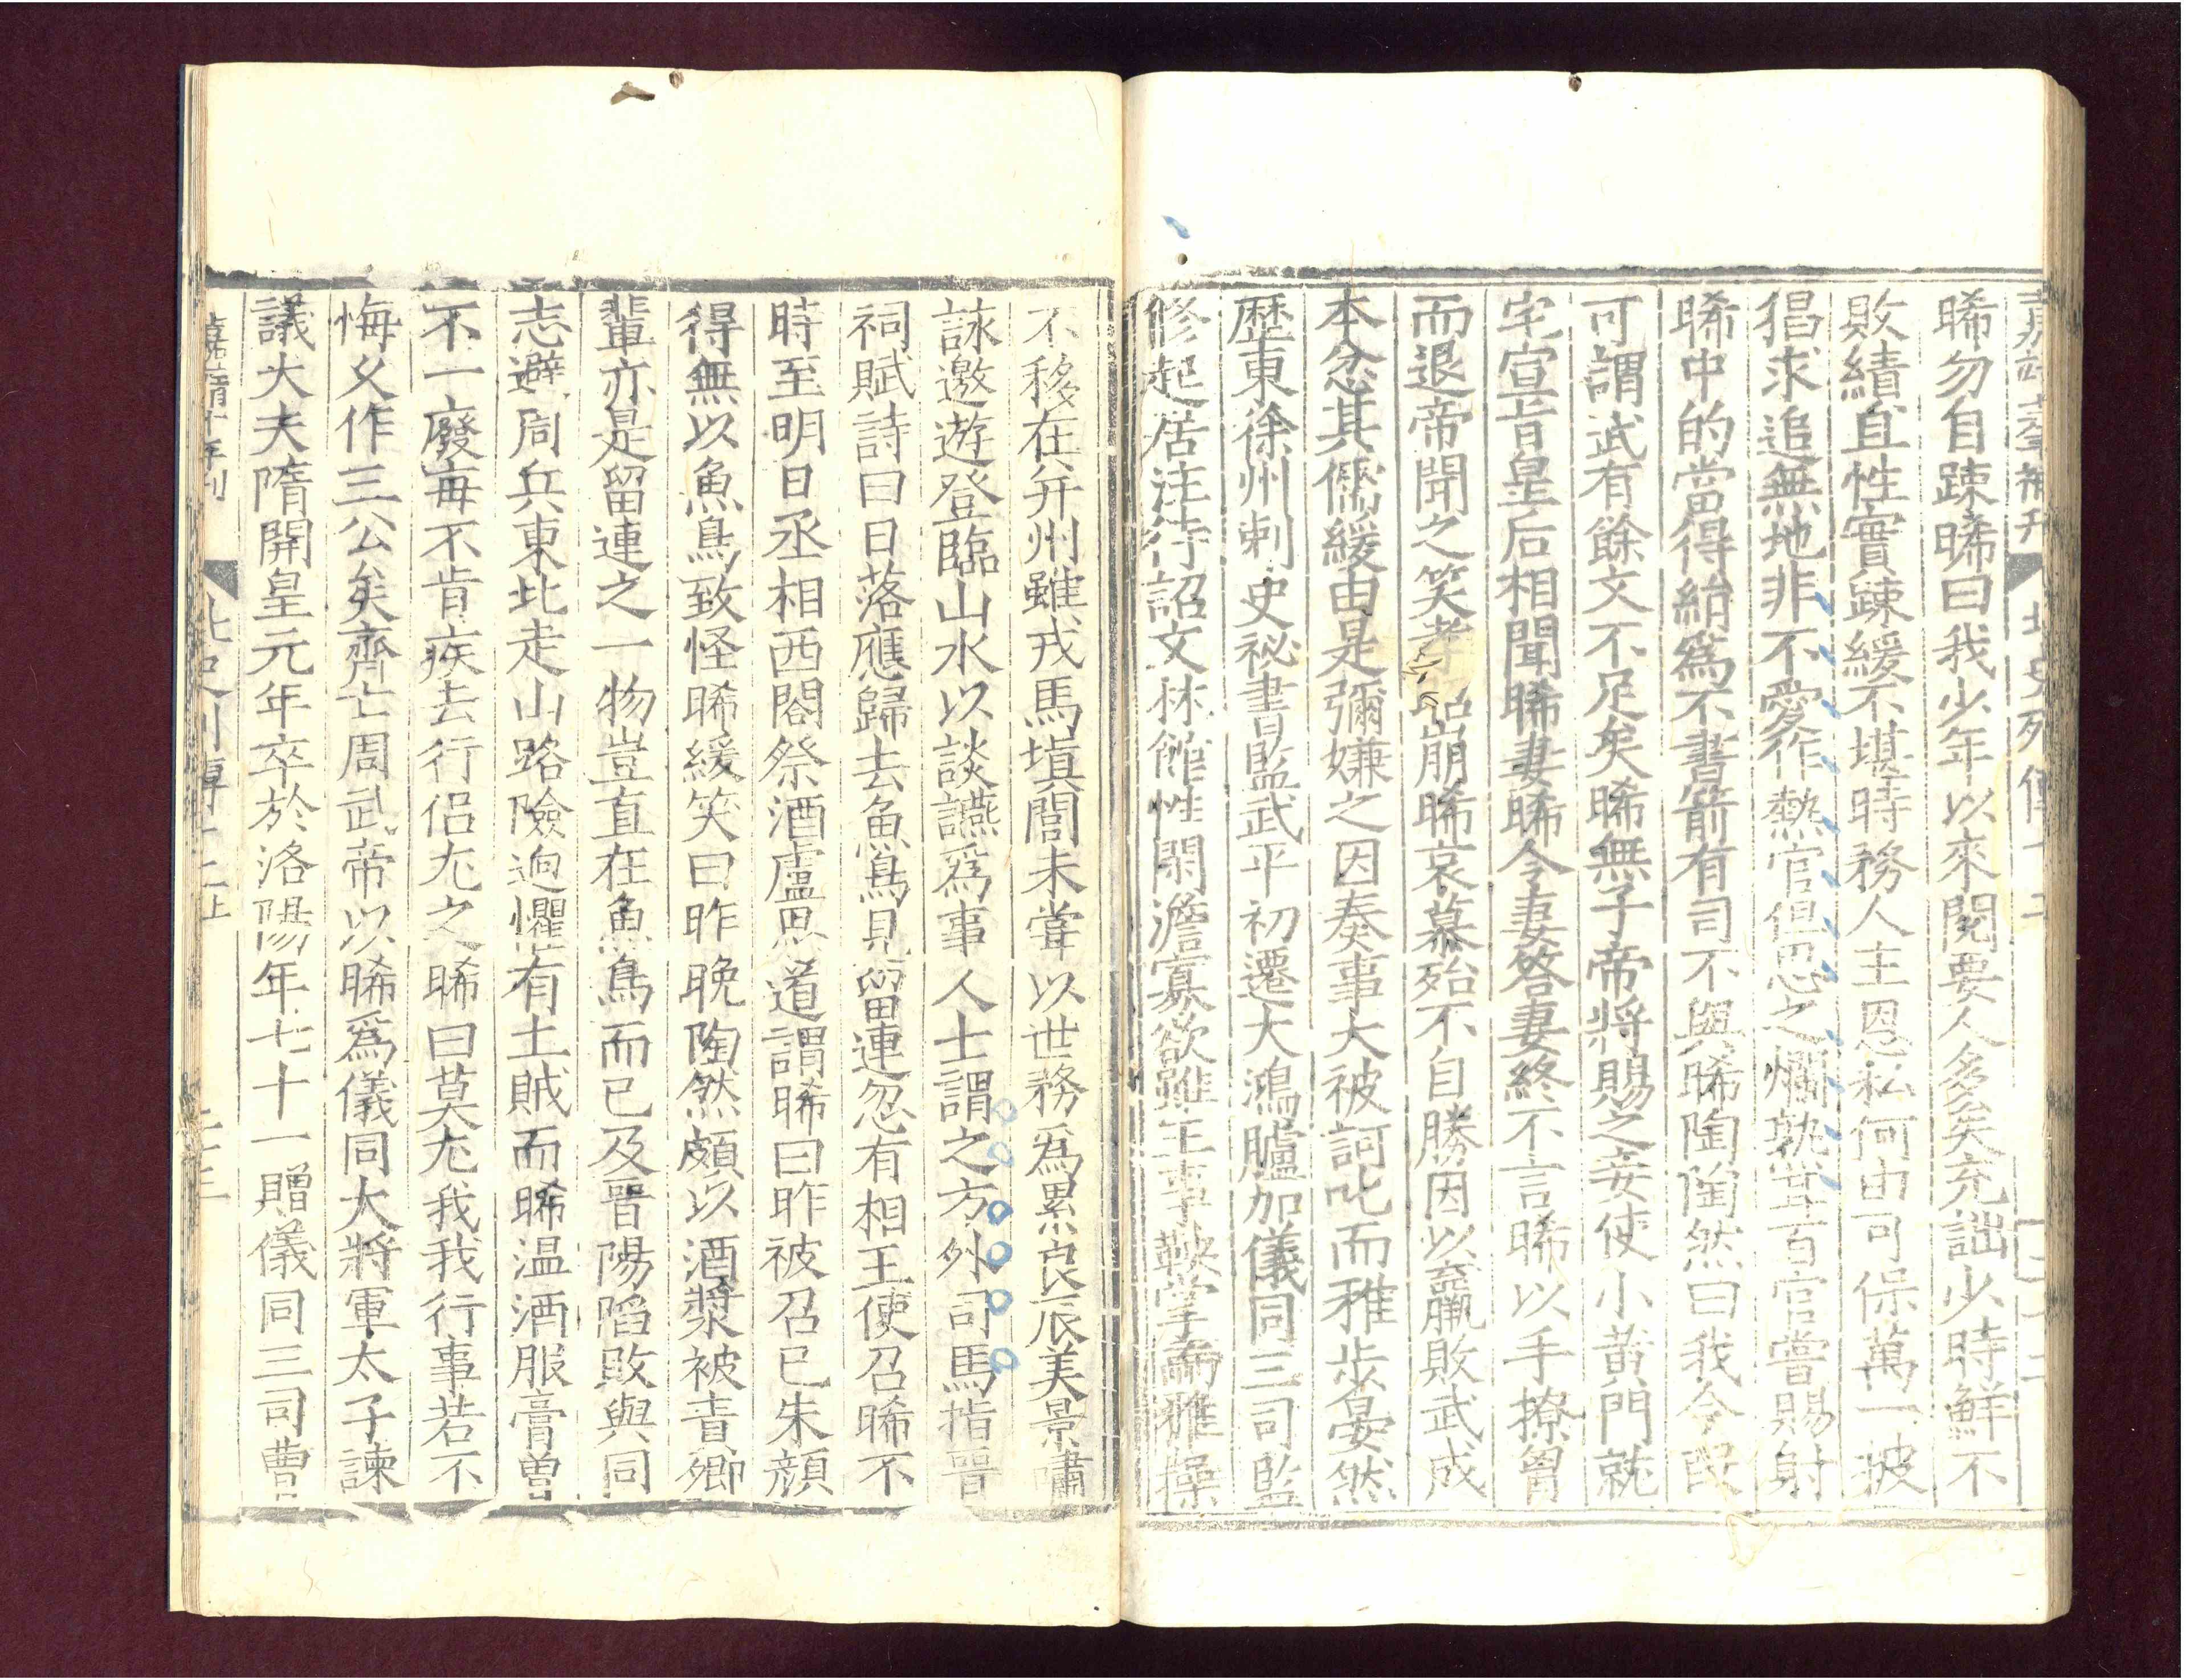 晞勿自踈晞曰我少年以來閱要人多矣充詘少時鮮不
敗績且性實踈緩不堪時務人主恩私何由可保萬一披
猖求追無地非不愛作熱官但思之爛孰耳百官嘗賜射
晞中的當得絹爲不書箭有司不與晞陶陶然曰我今段
可謂武有餘文不足矣晞無子帝將賜之妾使小黄門就
宅宣旨皇后相聞晞妻晞令妻答妻終不言晞以手撩胷
而退帝聞之笑孝昭崩晞哀慕殆不自勝因以羸敗武成
本忿其儒緩由是彌嫌之因奏事大被訶叱而雅步晏然
歷東徐州刺史祕書監武平初遷大鴻臚加儀同三司監
修起居注待詔文林館性閑澹寡欲雖王事鞅掌而雅操
不移在幷州雖戎馬填閭未嘗以世務爲累良辰美景嘯
詠遨遊登臨山水以談讌爲事人士謂之方外司馬指晉
祠賦詩曰日落應歸去魚鳥見留連忽有相王使召晞不
時至明日丞相西閤祭酒盧思道謂晞曰昨被召已朱顔
得無以魚鳥致怪晞緩笑曰昨晚陶然頗以酒漿被責卿
輩亦是留連之一物豈直在魚鳥而已及晉陽陷敗與同
志避周兵東北走山路險逈懼有土賊而晞温酒服膏曾
不一廢每不肯疾去行侣尤之晞曰莫尤我我行事若不
悔久作三公矣齊亡周武帝以晞爲儀同大將軍太子諫
議大夫隋開皇元年卒於洛陽年七十一贈儀同三司曹
嘉靖十年刊
北史列傳十二
二三